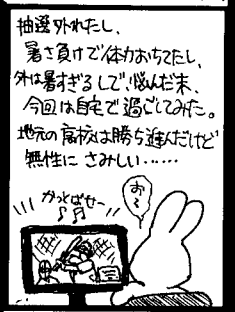 抽選外れたし、
暑さ負けで体力おちてたし、
外は暑すぎるしで、悩んだ末、
今回は自宅で過ごしてみた。
地元の高校は勝ち進んだけど
無性にさみしい……
お〜
かっとばせー
♪♪